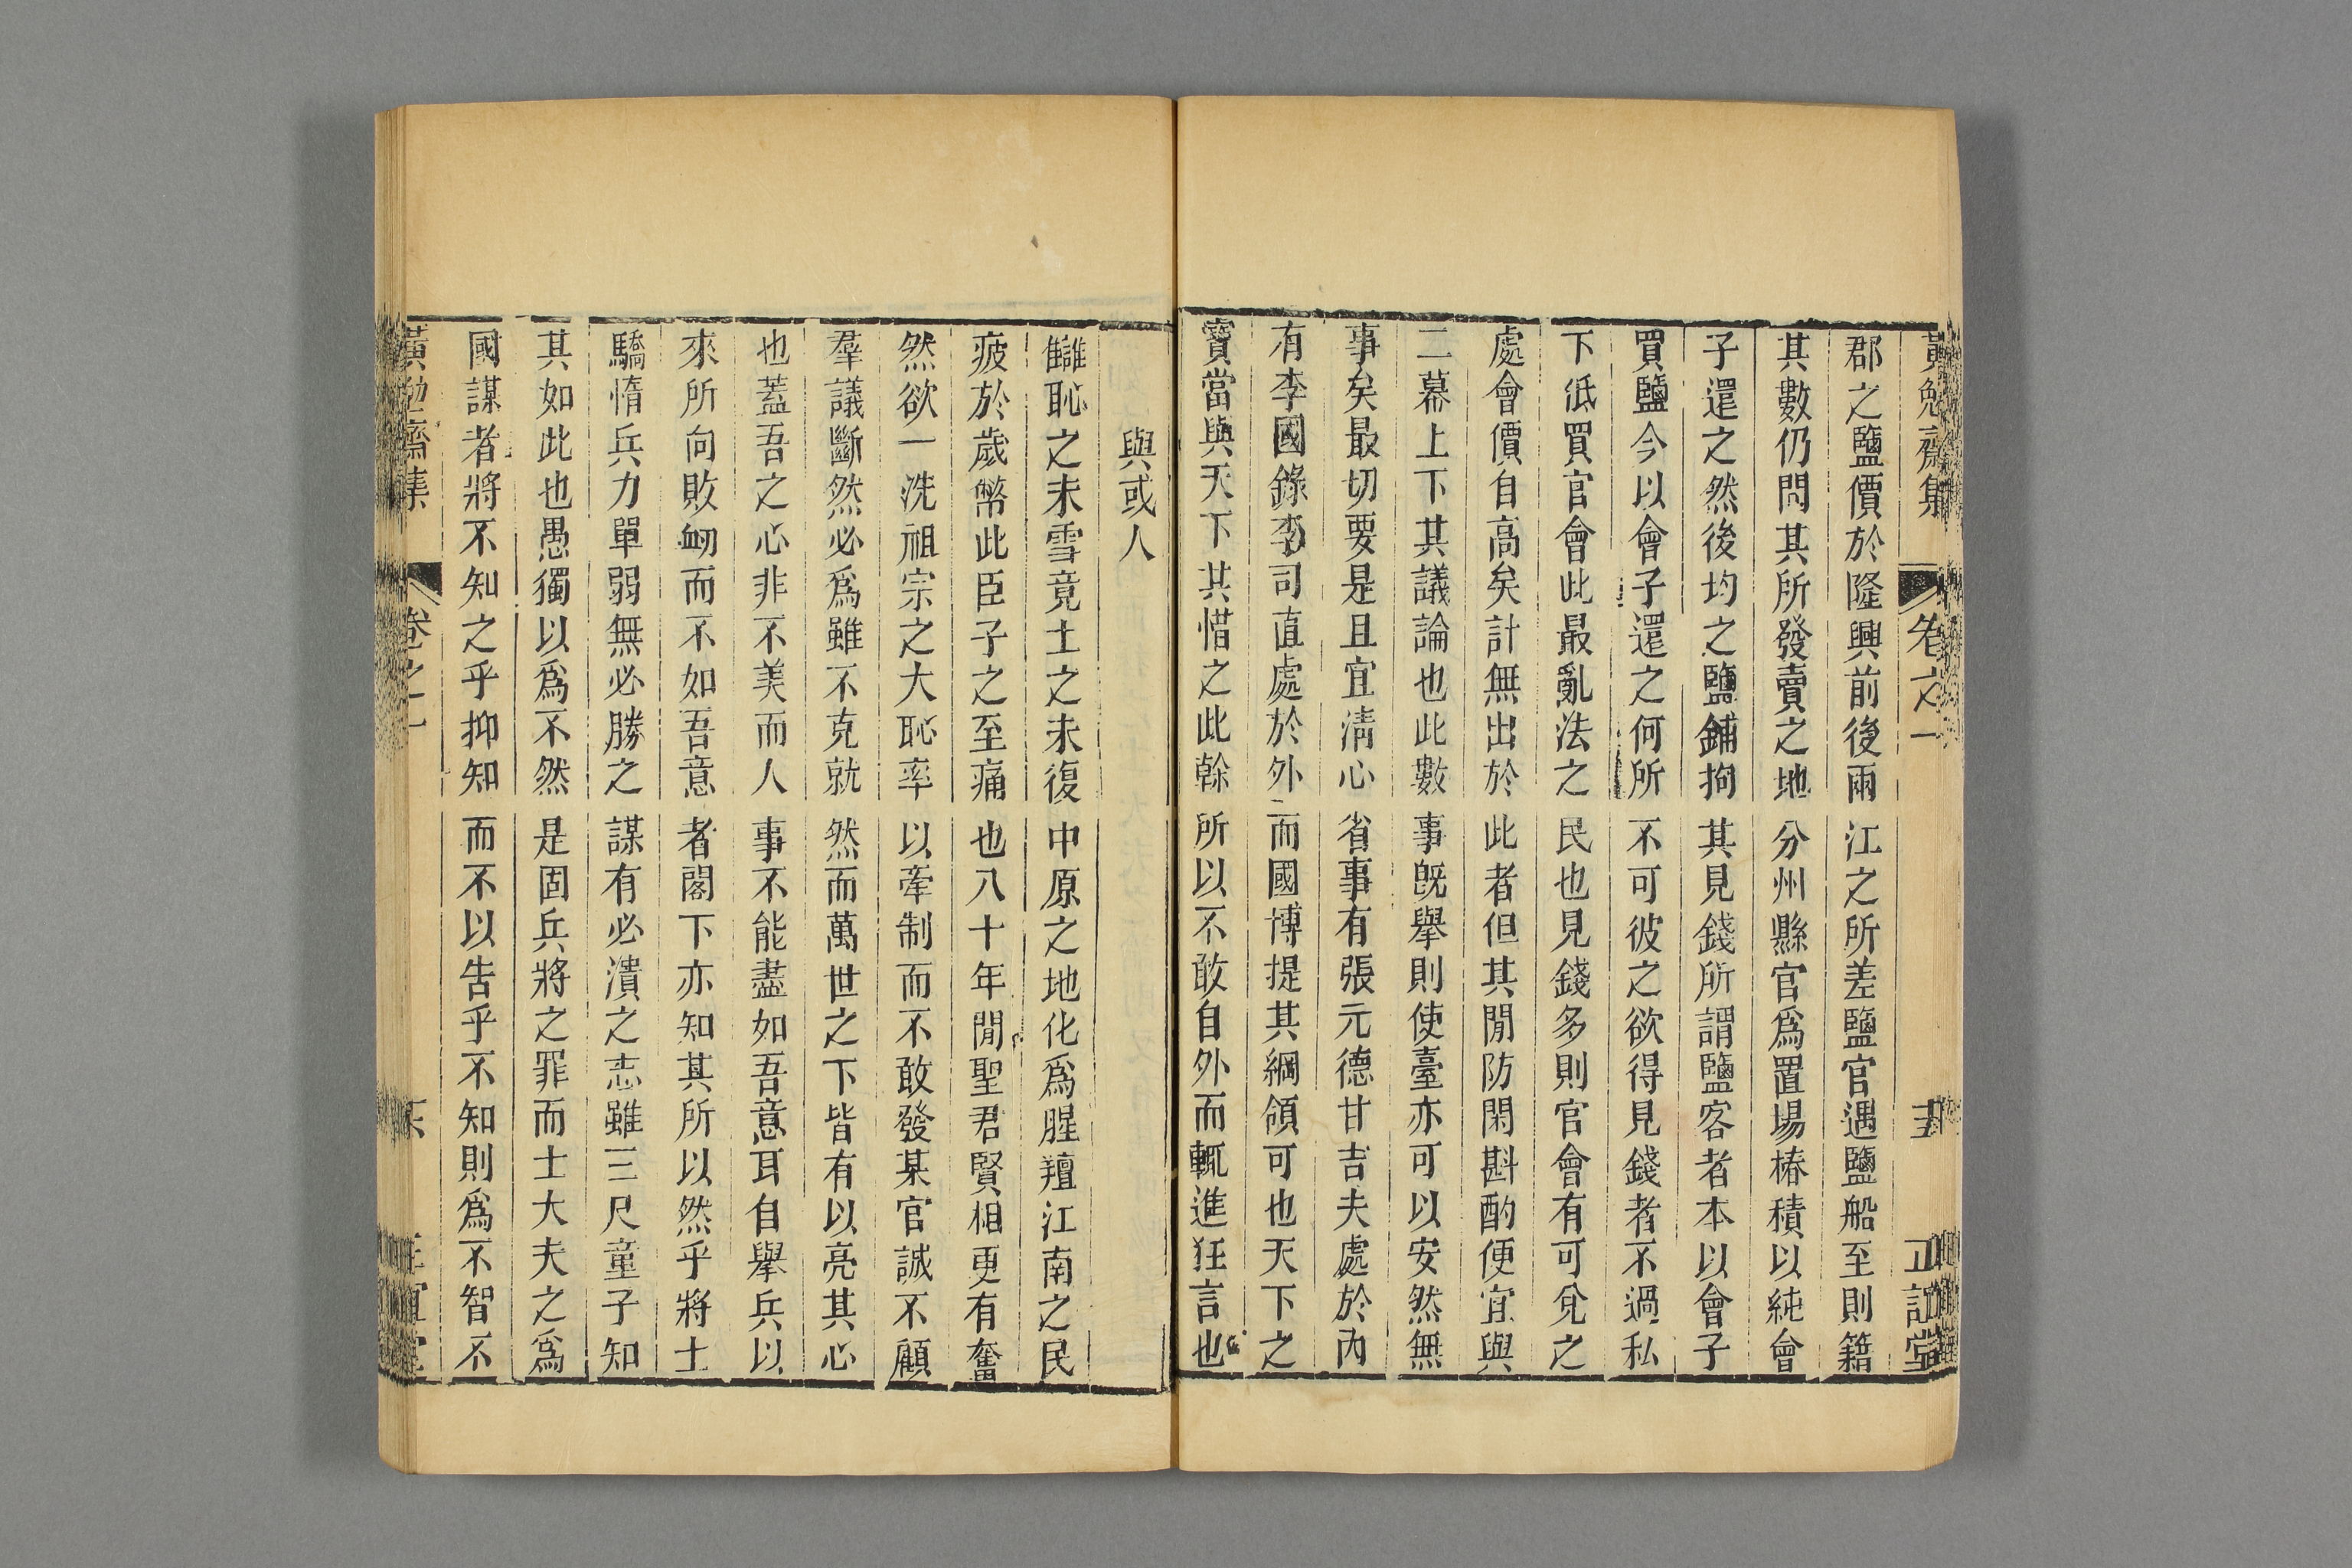 黃勉齋集 卷之一 正誼堂
郡之鹽價於隆興前後兩江之所差鹽官遇鹽船至則籍
其數仍問其所發賣之地分州縣官爲置場樁積以純會
子還之然後均之鹽鋪拘其見錢所謂鹽客者本以會子
買鹽今以會子還之何所不可彼之欲得見錢者不過私
下低買官會此最亂法之民也見錢多則官會有可兌之
處會價自高矣計無出於此者但其閒防閑斟酌便宜與
二幕上下其議論也此數事旣舉則使臺亦可以安然無
事矣最切要是且宜淸心省事有張元德甘吉夫處於內
有李國錄李司直處於外而國博提其綱領可也天下之
寶當與天下共惜之此榦所以不敢自外而輒進狂言也
與或人
讎恥之未雪竟土之未復中原之地化爲腥羶江南之民
疲於歲幣此臣子之至痛也八十年閒聖君賢相更有奮
然欲一洗祖宗之大恥率以牽制而不敢發某官誠不顧
羣議斷然必爲雖不克就然而萬世之下皆有以亮其心
也蓋吾之心非不美而人事不能盡如吾意耳自舉兵以
來所向敗衂而不如吾意者閣下亦知其所以然乎將士
驕惰兵力單弱無必勝之謀有必潰之志雖三尺童子知
其如此也愚獨以爲不然是固兵將之罪而士大夫之爲
國謀者將不知之乎抑知而不以告乎不知則爲不智不
黃勉齋集 卷之一